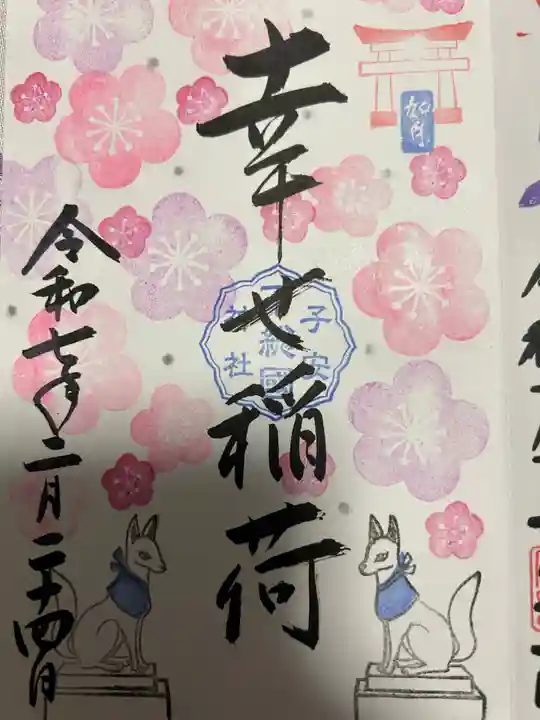 幸せ稲荷
子安
下総國
神社
令和七年二月二十四日